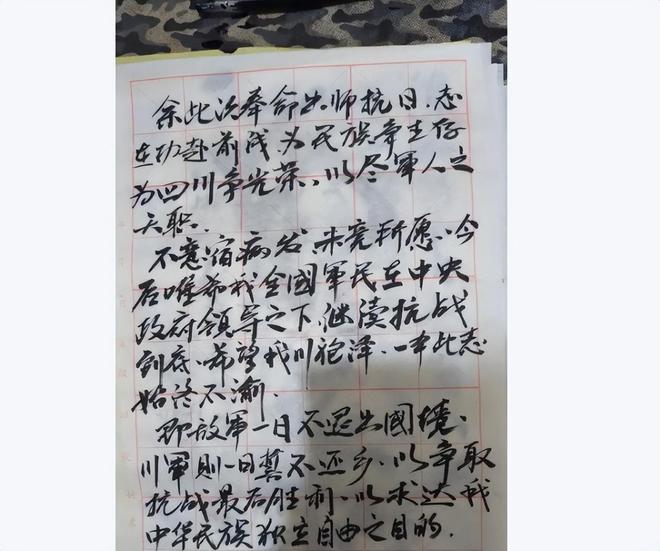 余此次奉命出师抗日、志
在功赴前成、为民族争生存
为四川争光荣、以尽軍人之
天职.
不意宿病发、未竟所愿、今
后唯希我全國軍民在中央
政府领导之下、继续抗战
到底、希望我川袍泽、一本此志
始终不渝.
即敌軍一日不退出國境、
川軍則一日誓不还乡、以争取
抗战最后胜利、以求达我
中华民族独立自由之目的.